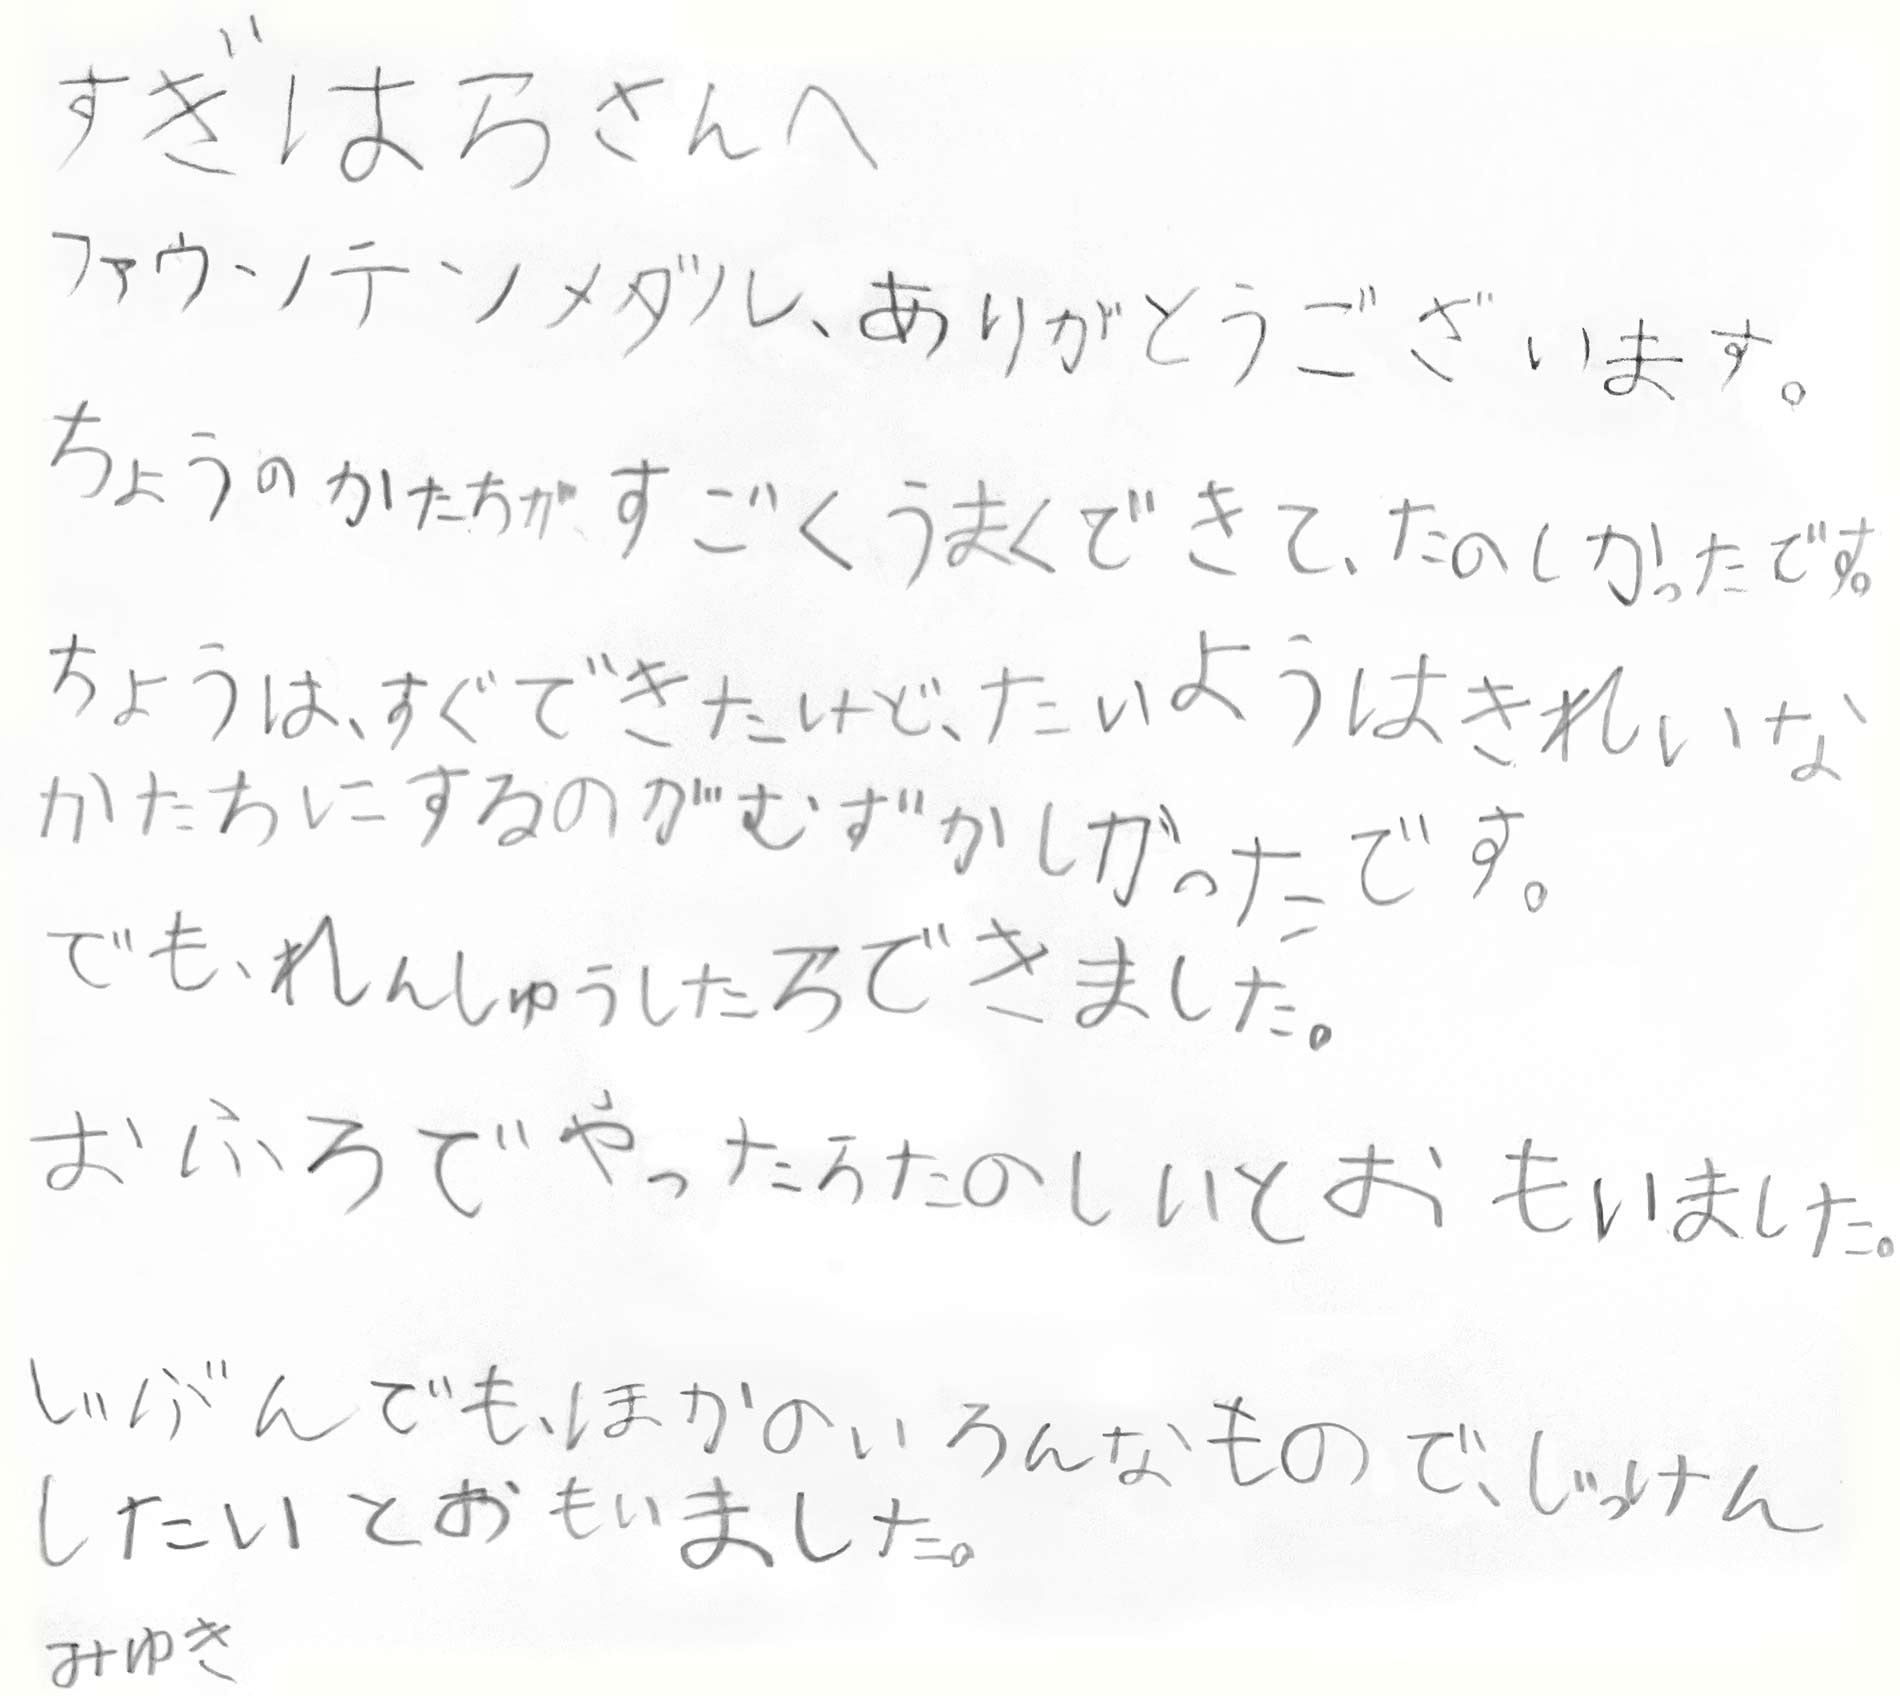 すぎはらさんへ
ファウンテンメダル、ありがとうございます。
ちょうのかたちがすごくうまくできて、たのしかったです。
ちょうは、すぐできたけど、たいようはきれいな
かたちにするのがむずかしかったです。
でも、れんしゅうしたらできました。
おふろでやったらたのしいとおもいました。
じぶんでも、ほかのいろんなもので、じっけん
したいとおもいました。
みゆき